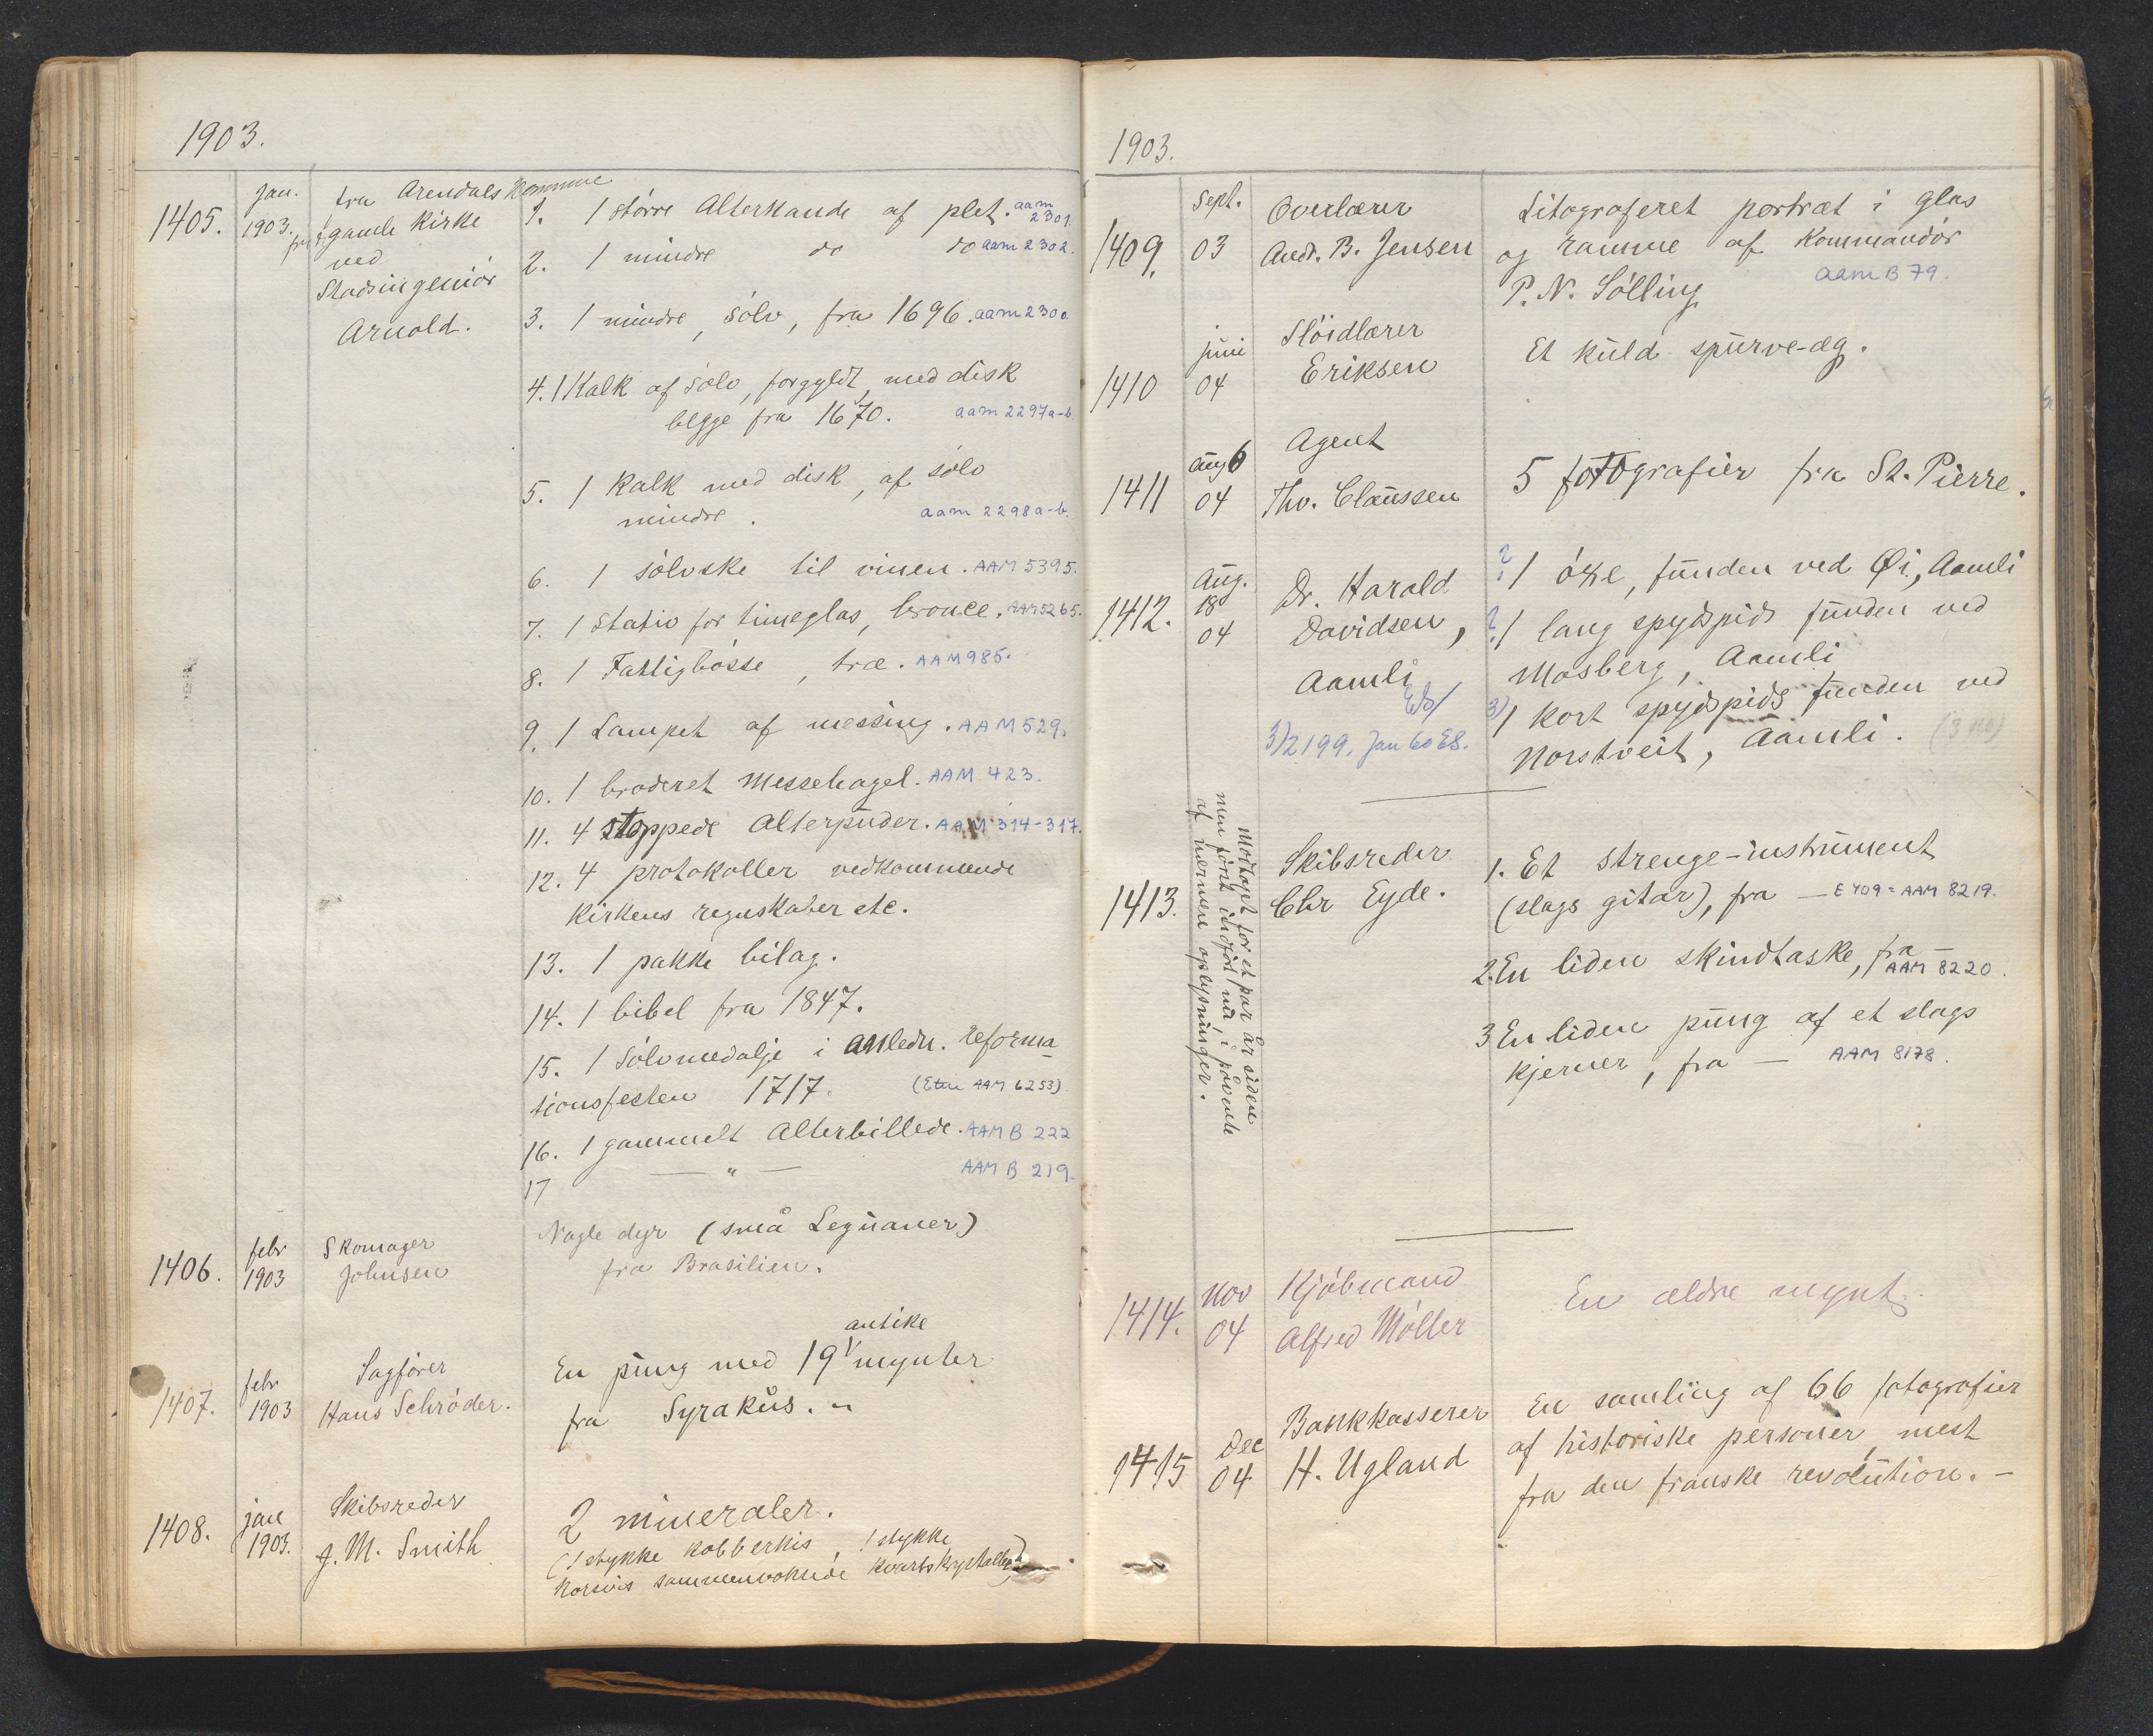 1903.
1405.
Jan.
1903.
fra Arendals Kommune
gamle Kirke
ved
Stadsingeniör
Arnold.
1. 1 större Alterkande af plet. aam 2301.
2. 1 mindre do do aam 2302.
3. 1 mindre, sölv, fra 1696. aam 2300.
4. 1 Kalk af sölv, forgyldt, med disk
begge fra 1670. aam 2297a-b.
5. 1 Kalk med disk, af sölv
mindre. aam 2298a-b.
6. 1 sölvske til vinen. AAM 5395.
7. 1 Stativ for timeglas, bronce. AAM 5265.
8. 1 Fattigbösse, træ. AAM 985.
9. 1 Lampet af messing. AAM 529.
10. 1 broderet Messehagel. AAM 423.
11. 4 stoppede Alterpuder. AAM 314-317.
12. 4 protokoller vedkommende
Kirkens regnskaber etc.
13. 1 pakke bilag.
14. 1 bibel fra 1847.
15. 1 Sölvmedalje i anledn. reforma-
tionsfesten 1717. (Etui AAM 6253)
16. 1 gammelt Alterbillede. AAM B 222
17 — " — AAM B 219.
1406.
febr
1903
Skomager
Johnsen
Nogle dyr (små Leguaner)
fra Brasilien.
1407.
febr
1903
Sagförer
Hans Schröder.
antike
En pung med 19 mynter
fra Syrakus. "
1408.
jan
1903.
Skibsreder
J. M. Smith
2 mineraler.
(1 stykke Kobberkis, 1 stykke
korsvis sammenvoksede kvartskrystaller)
1903.
1409.
Sept.
03
Overlærer
Andr. B. Jensen
Litograferet portræt i glas
og ramme af Kommandör
P. N. Sölling
aam B 79.
1410
juni
04
Slöidlærer
Eriksen
Et kuld spurve-æg.
1411
aug 6
04
Agent
Thv. Claussen
5 fotografier fra St. Pierre.
1412.
Aug.
18
04
Dr. Harald
Davidsen,
Aamli
3) 2199. Jan 60 ES.
? 1 öxe, funden ved Øi, Aamli
? 1 lang spydspids funden ved
Mosberg, Aamli
3) 1 kort spydspids funden ved
Norstveit, Aamli.
1413.
Modtaget for et par år siden
men först indfört nu, i påvente
af nærmere oplysninger.
Skibsreder
Chr Eyde.
1. Et strenge-instrument
(slags gitar), fra — E 409 = AAM 8219.
2. En liden skindtaske, fra —
AAM 8220.
3 En liden pung af et slags
kjerner, fra — AAM 8178.
1414.
Nov
04
Kjöbmand
Alfred Möller
En ældre mynt.
1415
Dec
04
Bankkasserer
H. Ugland
En samling af 66 fotografier
af historiske personer, mest
fra den franske revolution. —